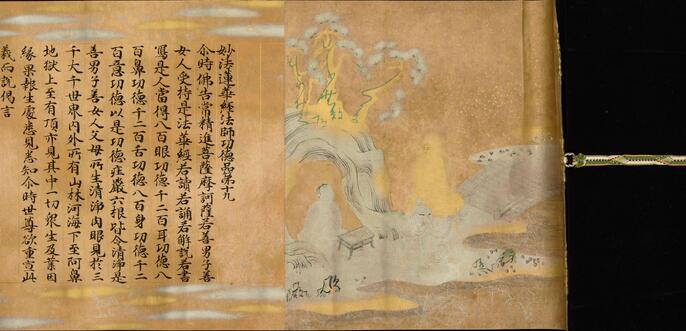 妙法蓮華經法師功德品第十九
尒時佛告常精進菩薩摩訶薩若善男子善
女人受持是法華經若讀若誦若解說若書
寫是人當得八百眼功德千二百耳功德八
百鼻功德千二百舌功德八百身功德千二
百意功德以是功德莊嚴六根皆令清淨是
善男子善女人父母所生清淨肉眼見於三
千大千世界內外所有山林河海下至阿鼻
地獄上至有頂亦見其中一切衆生及業因
緣果報生處悉見悉知尒時世尊欲重宣此
義而說偈言